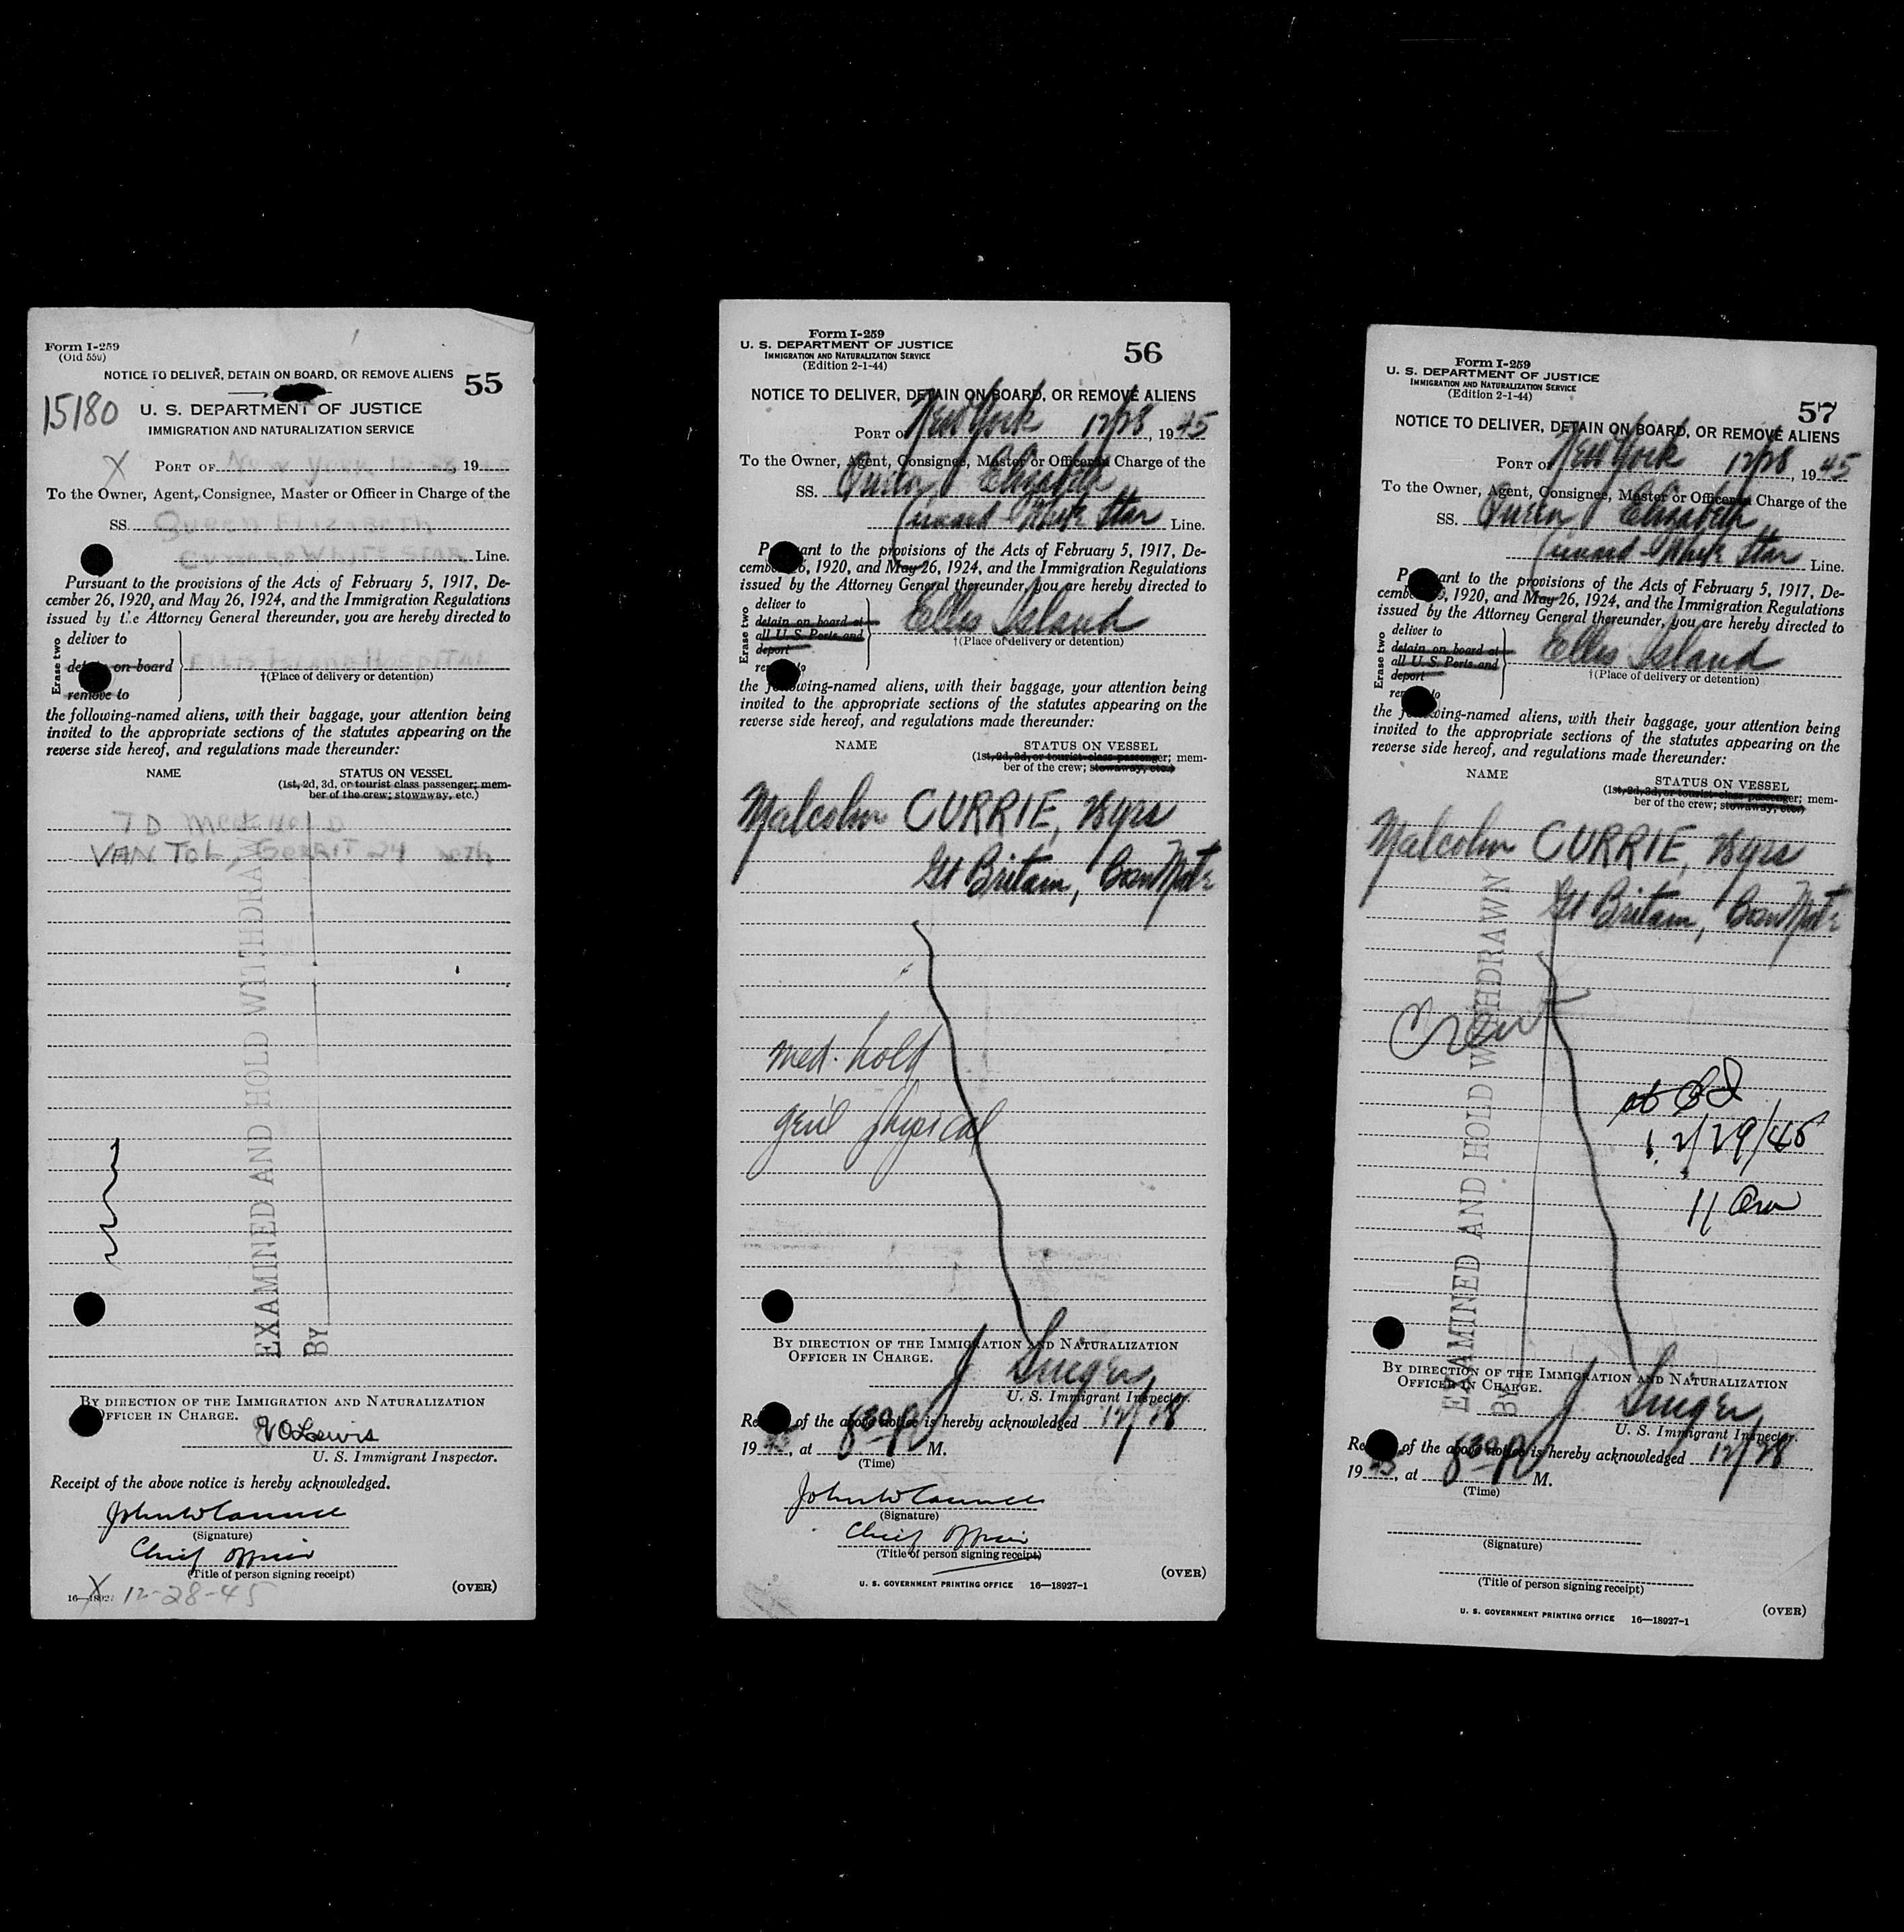 Form I-259
(Old 559)
NOTICE TO DELIVER, DETAIN ON BOARD, OR REMOVE ALIENS
55
15180
U. S. DEPARTMENT OF JUSTICE
IMMIGRATION AND NATURALIZATION SERVICE
X
PORT OF New York 12-28, 19
To the Owner, Agent, Consignee, Master or Officer in Charge of the
SS. Queen Elizabeth
Cunard White Star Line.
Pursuant to the provisions of the Acts of February 5, 1917, De-
cember 26, 1920, and May 26, 1924, and the Immigration Regulations
issued by the Attorney General thereunder, you are hereby directed to
Erase two
deliver to
detain on board
remove to
Ellis Island Hospital
†(Place of delivery or detention)
the following-named aliens, with their baggage, your attention being
invited to the appropriate sections of the statutes appearing on the
reverse side hereof, and regulations made thereunder:
NAME STATUS ON VESSEL
(1st, 2d, 3d, or tourist class passenger; mem-
ber of the crew; stowaway, etc.)
VAN TOL, GERRIT 24
EXAMINED AND HOLD WITHDRAWN
BY
BY DIRECTION OF THE IMMIGRATION AND NATURALIZATION
OFFICER IN CHARGE.
Lewis
U. S. Immigrant Inspector.
Receipt of the above notice is hereby acknowledged.
John W
(Signature)
Chief Officer
(Title of person signing receipt)
X 12-28-45
(OVER)
Form I-259
U. S. DEPARTMENT OF JUSTICE
IMMIGRATION AND NATURALIZATION SERVICE
(Edition 2-1-44)
56
NOTICE TO DELIVER, DETAIN ON BOARD, OR REMOVE ALIENS
PORT OF New York 12/28, 1945
To the Owner, Agent, Consignee, Master or Officer in Charge of the
SS. Queen Elizabeth
Cunard-White Star Line.
Pursuant to the provisions of the Acts of February 5, 1917, De-
cember 26, 1920, and May 26, 1924, and the Immigration Regulations
issued by the Attorney General thereunder, you are hereby directed to
Erase two
deliver to
detain on board at
all U. S. Ports and
deport
remove to
Ellis Island
†(Place of delivery or detention)
the following-named aliens, with their baggage, your attention being
invited to the appropriate sections of the statutes appearing on the
reverse side hereof, and regulations made thereunder:
NAME STATUS ON VESSEL
(1st, 2d, 3d, or tourist class passenger; mem-
ber of the crew; stowaway, etc.)
Malcolm CURRIE, yrs
Gt Britain,
med. hold
gen'l physical
BY DIRECTION OF THE IMMIGRATION AND NATURALIZATION
OFFICER IN CHARGE.
J Singer
U. S. Immigrant Inspector.
Receipt of the above notice is hereby acknowledged 12/28,
1945, at 830 P M.
(Time)
John W
(Signature)
Chief Officer
(Title of person signing receipt)
(OVER)
U. S. GOVERNMENT PRINTING OFFICE 16—18927-1
Form I-259
U. S. DEPARTMENT OF JUSTICE
IMMIGRATION AND NATURALIZATION SERVICE
(Edition 2-1-44)
57
NOTICE TO DELIVER, DETAIN ON BOARD, OR REMOVE ALIENS
PORT OF New York 12/28, 1945
To the Owner, Agent, Consignee, Master or Officer in Charge of the
SS. Queen Elizabeth
Cunard-White Star Line.
Pursuant to the provisions of the Acts of February 5, 1917, De-
cember 26, 1920, and May 26, 1924, and the Immigration Regulations
issued by the Attorney General thereunder, you are hereby directed to
Erase two
deliver to
detain on board at
all U. S. Ports and
deport
remove to
Ellis Island
†(Place of delivery or detention)
the following-named aliens, with their baggage, your attention being
invited to the appropriate sections of the statutes appearing on the
reverse side hereof, and regulations made thereunder:
NAME STATUS ON VESSEL
(1st, 2d, 3d, or tourist class passenger; mem-
ber of the crew; stowaway, etc.)
Malcolm CURRIE, yrs
Gt Britain,
EXAMINED AND HOLD WITHDRAWN
BY
at
12/29/45
11
BY DIRECTION OF THE IMMIGRATION AND NATURALIZATION
OFFICER IN CHARGE.
J Singer
U. S. Immigrant Inspector.
Receipt of the above notice is hereby acknowledged 12/28,
1945, at 830 P M.
(Time)
(Signature)
(Title of person signing receipt)
U. S. GOVERNMENT PRINTING OFFICE 16—18927-1
(OVER)